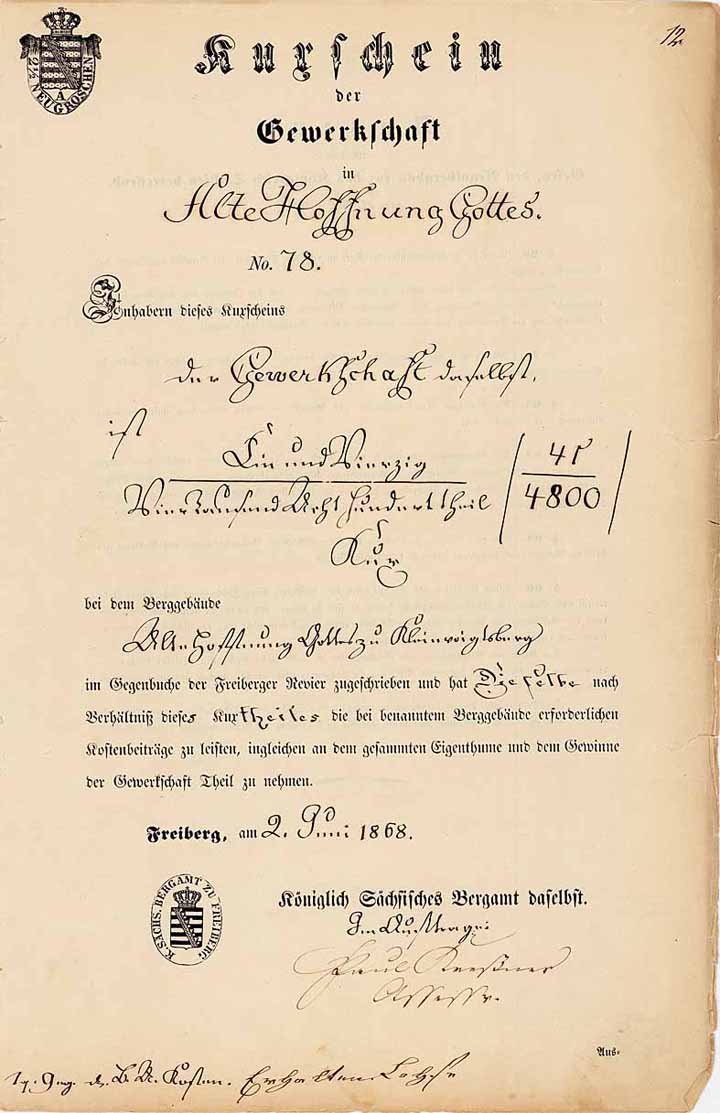 12.
2½ NEUGROSCHEN
A
Kuxschein
der
Gewerkschaft
in
Alte Hoffnung Gottes.
No. 78.
Inhabern dieses Kuxscheins
der Gewerkschaft daselbst,
ist
Ein und Vierzig
41
Viertausend Acht hundert theil
4800
Kux
bei dem Berggebäude
Alte Hoffnung Gottes zu Kleinvoigtsberg
im Gegenbuche der Freiberger Revier zugeschrieben und hat Dieselbe nach
Verhältniß dieses Kuxtheiles die bei benanntem Berggebäude erforderlichen
Kostenbeiträge zu leisten, ingleichen an dem gesammten Eigenthume und dem Gewinne
der Gewerkschaft Theil zu nehmen.
Freiberg, am 2. Juni 1868.
K. SÄCHS. BERGAMT ZU FREIBERG.
Königlich Sächsisches Bergamt daselbst.
Im Auftrage:
Paul
Assessor.
Aus-
Kosten. Erhalten Lohse